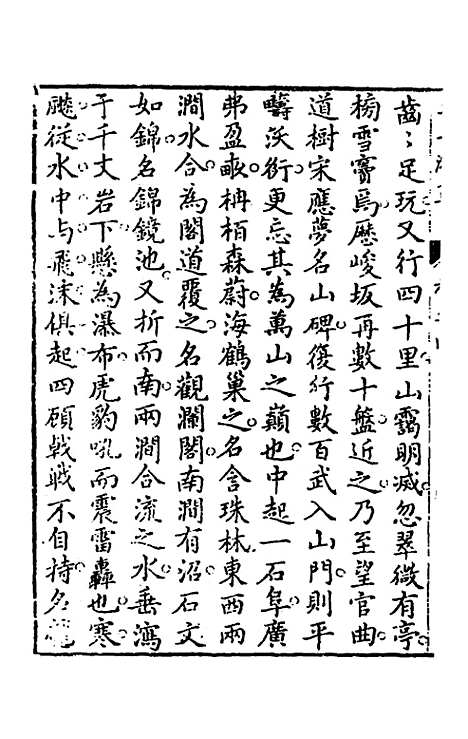 齒〻足玩又行四十里山靄明滅忽翠微有亭
榜雪竇焉歷峻坂再數十盤近之乃至望官曲
道樹宋應夢名山碑復行數百武入山門則平
疇沃衍更忘其為萬山之巔也中起一石阜廣
弗盈畝枏栢森蔚海鶴巢之名含珠林東西兩
澗水合為閣道覆之名觀瀾閣南澗有沼石文
如錦名錦鏡池又折而南兩澗合流之水垂瀉
于千丈岩下懸為瀑布虎豹吼而震雷轟也寒
颷從水中与飛沫俱起四顧戰戰不自持名龍